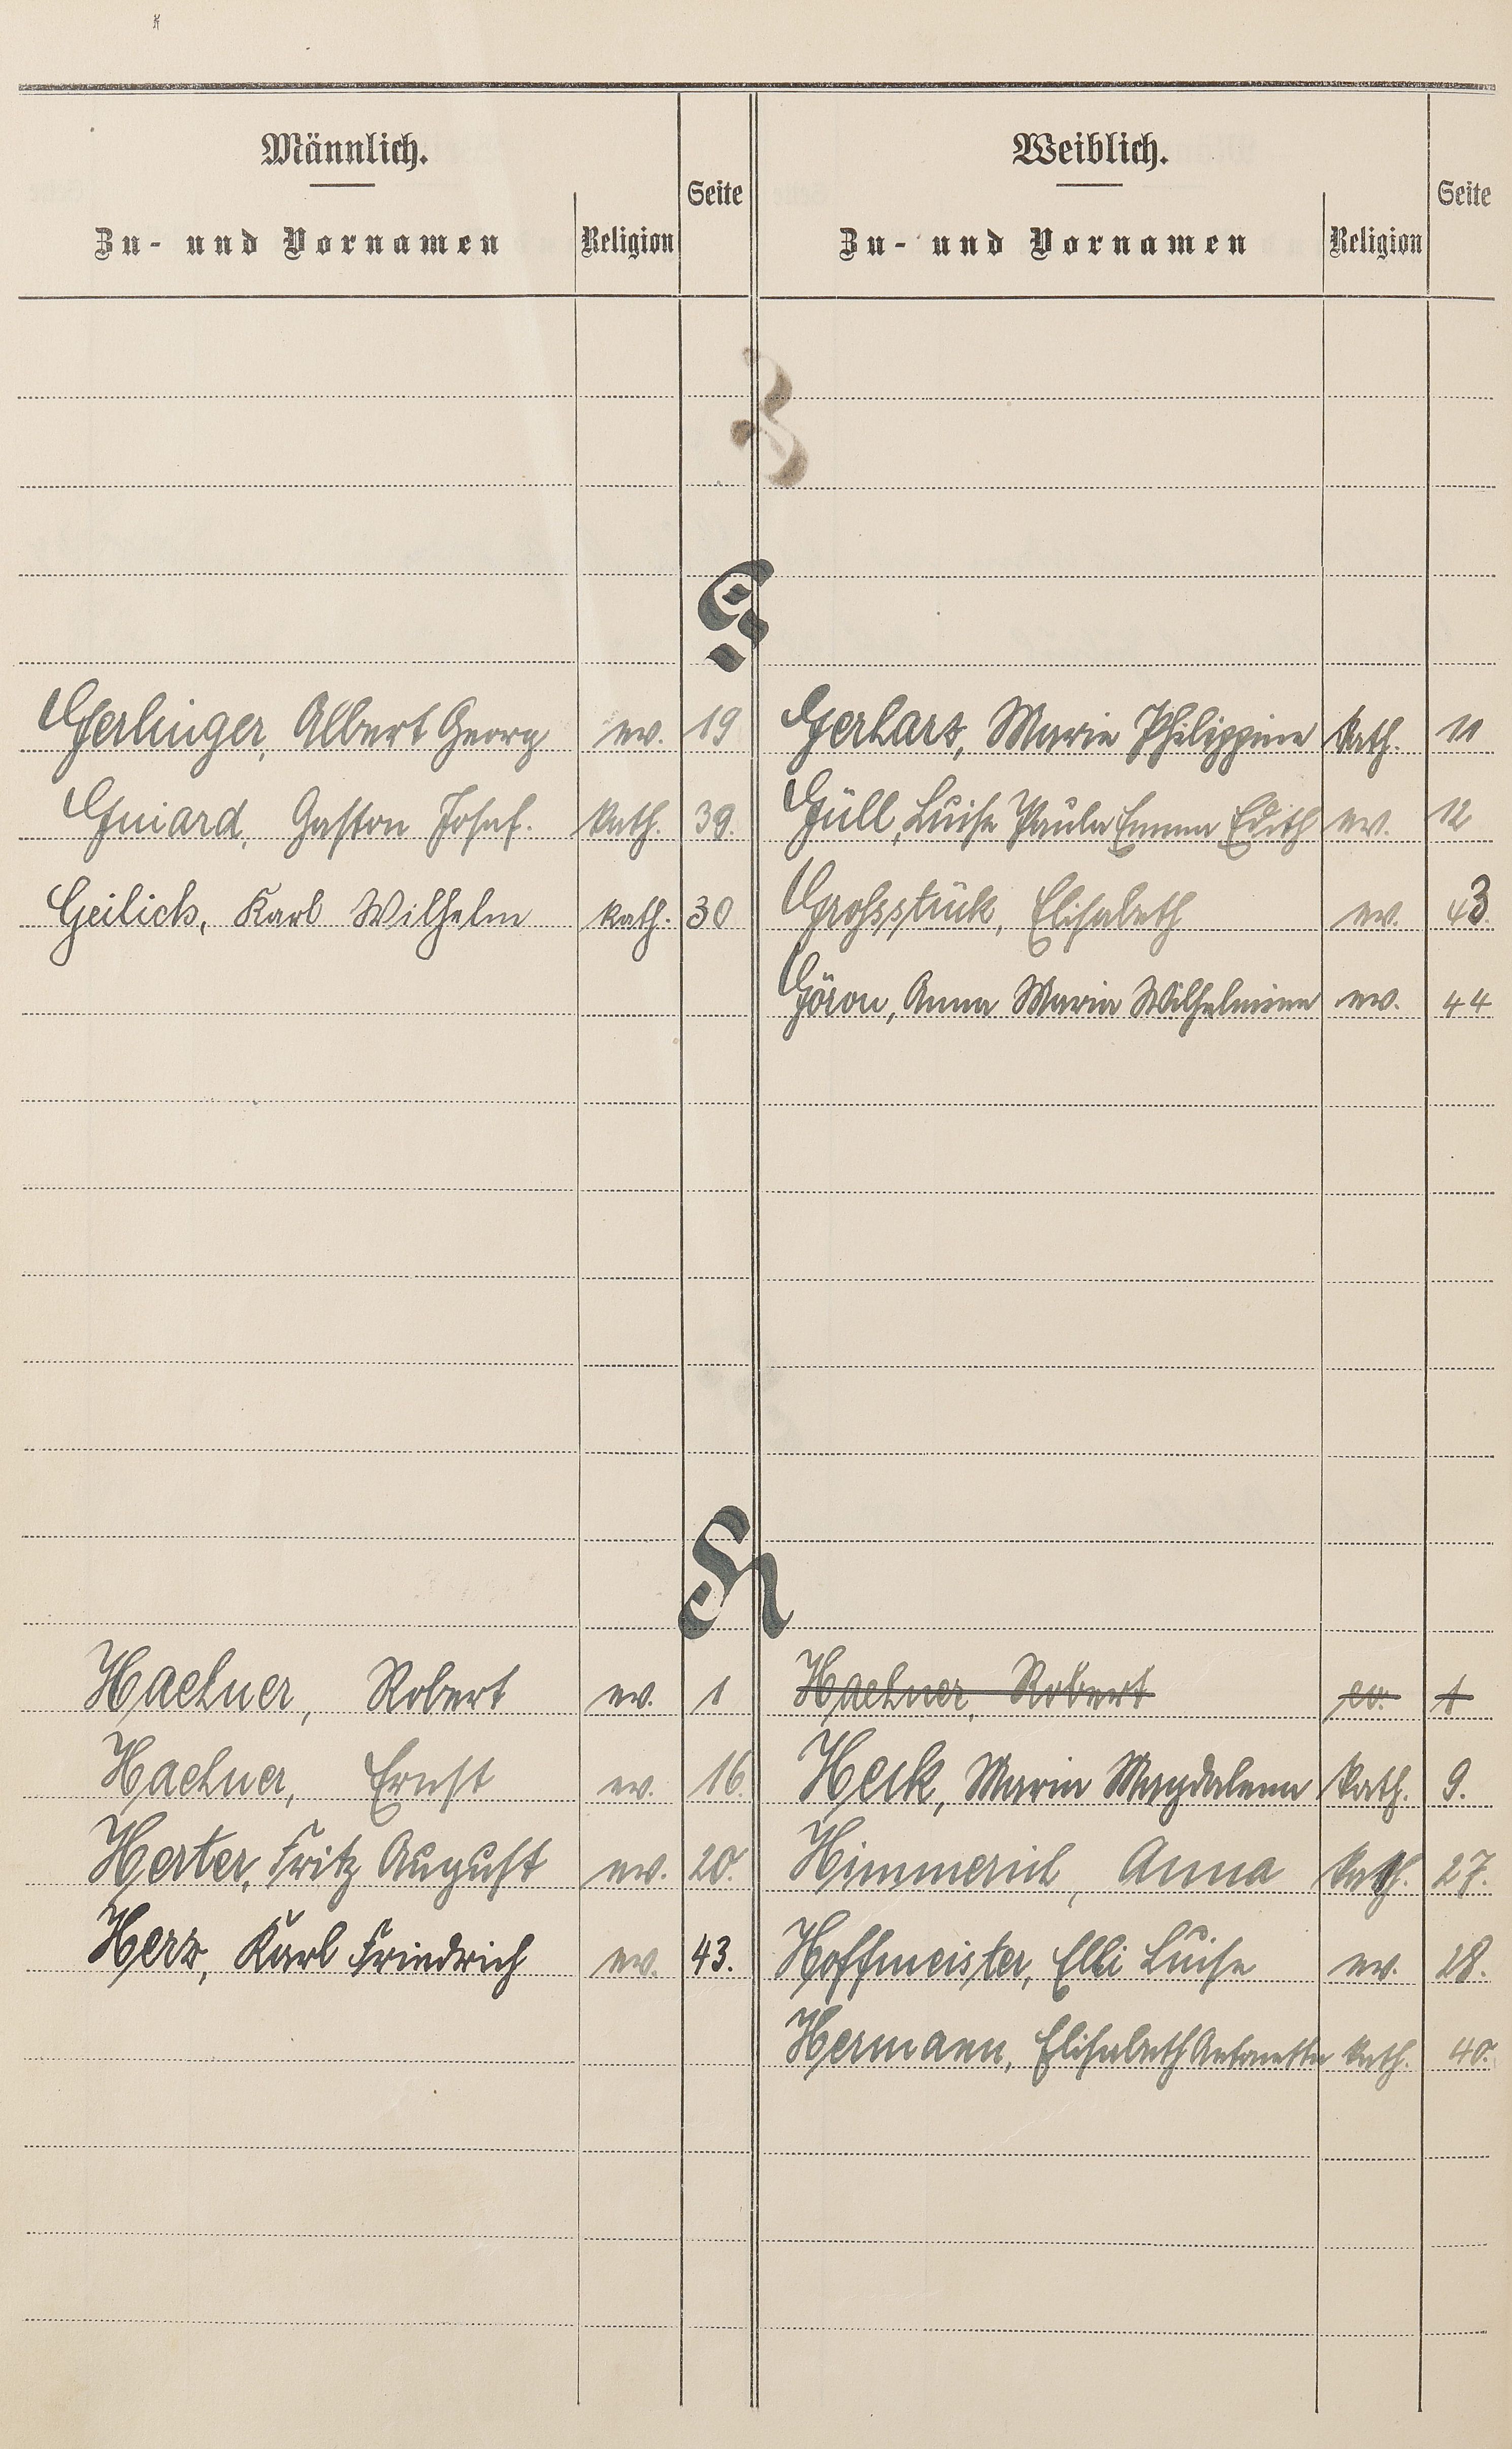 Männlich. Seite Weiblich. Seite
Zu- und Vornamen Religion Zu- und Vornamen Religion
G
Gerlinger, Albert Georg ev. 19 Gerharz, Marie Philippine kath. 11
Guiard, Gaston Josef. kath. 39. Güll, Luise Paula Emma Edith ev. 12
Geilich, Karl Wilhelm kath. 30 Grossstück, Elisabeth ev. 43.
Göron, Anna Maria Wilhelmine ev. 44
H
Haehner, Robert ev. 1 Haehner, Robert ev. 1
Haehner, Ernst ev. 16 Heck, Maria Magdalena kath. 9.
Herter, Fritz August ev. 20. Himmerich, Anna kath. 27.
Herz, Karl Friedrich ev. 43. Hoffmeister, Elli Luise ev. 28.
Hermann, Elisabeth Antonette kath. 40.